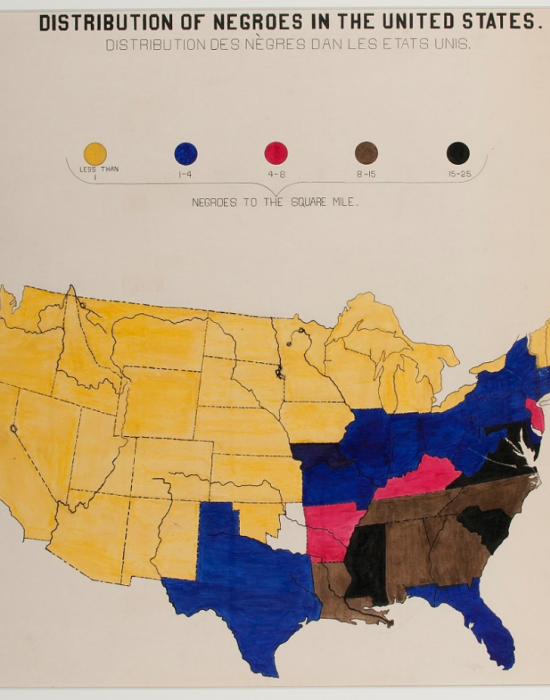 DISTRIBUTION OF NEGROES IN THE UNITED STATES.
DISTRIBUTION DES NÈGRES DAN LES ETATS UNIS.
LESS THAN
1
1-4
4-8
8-15
15-25
NEGROES TO THE SQUARE MILE.